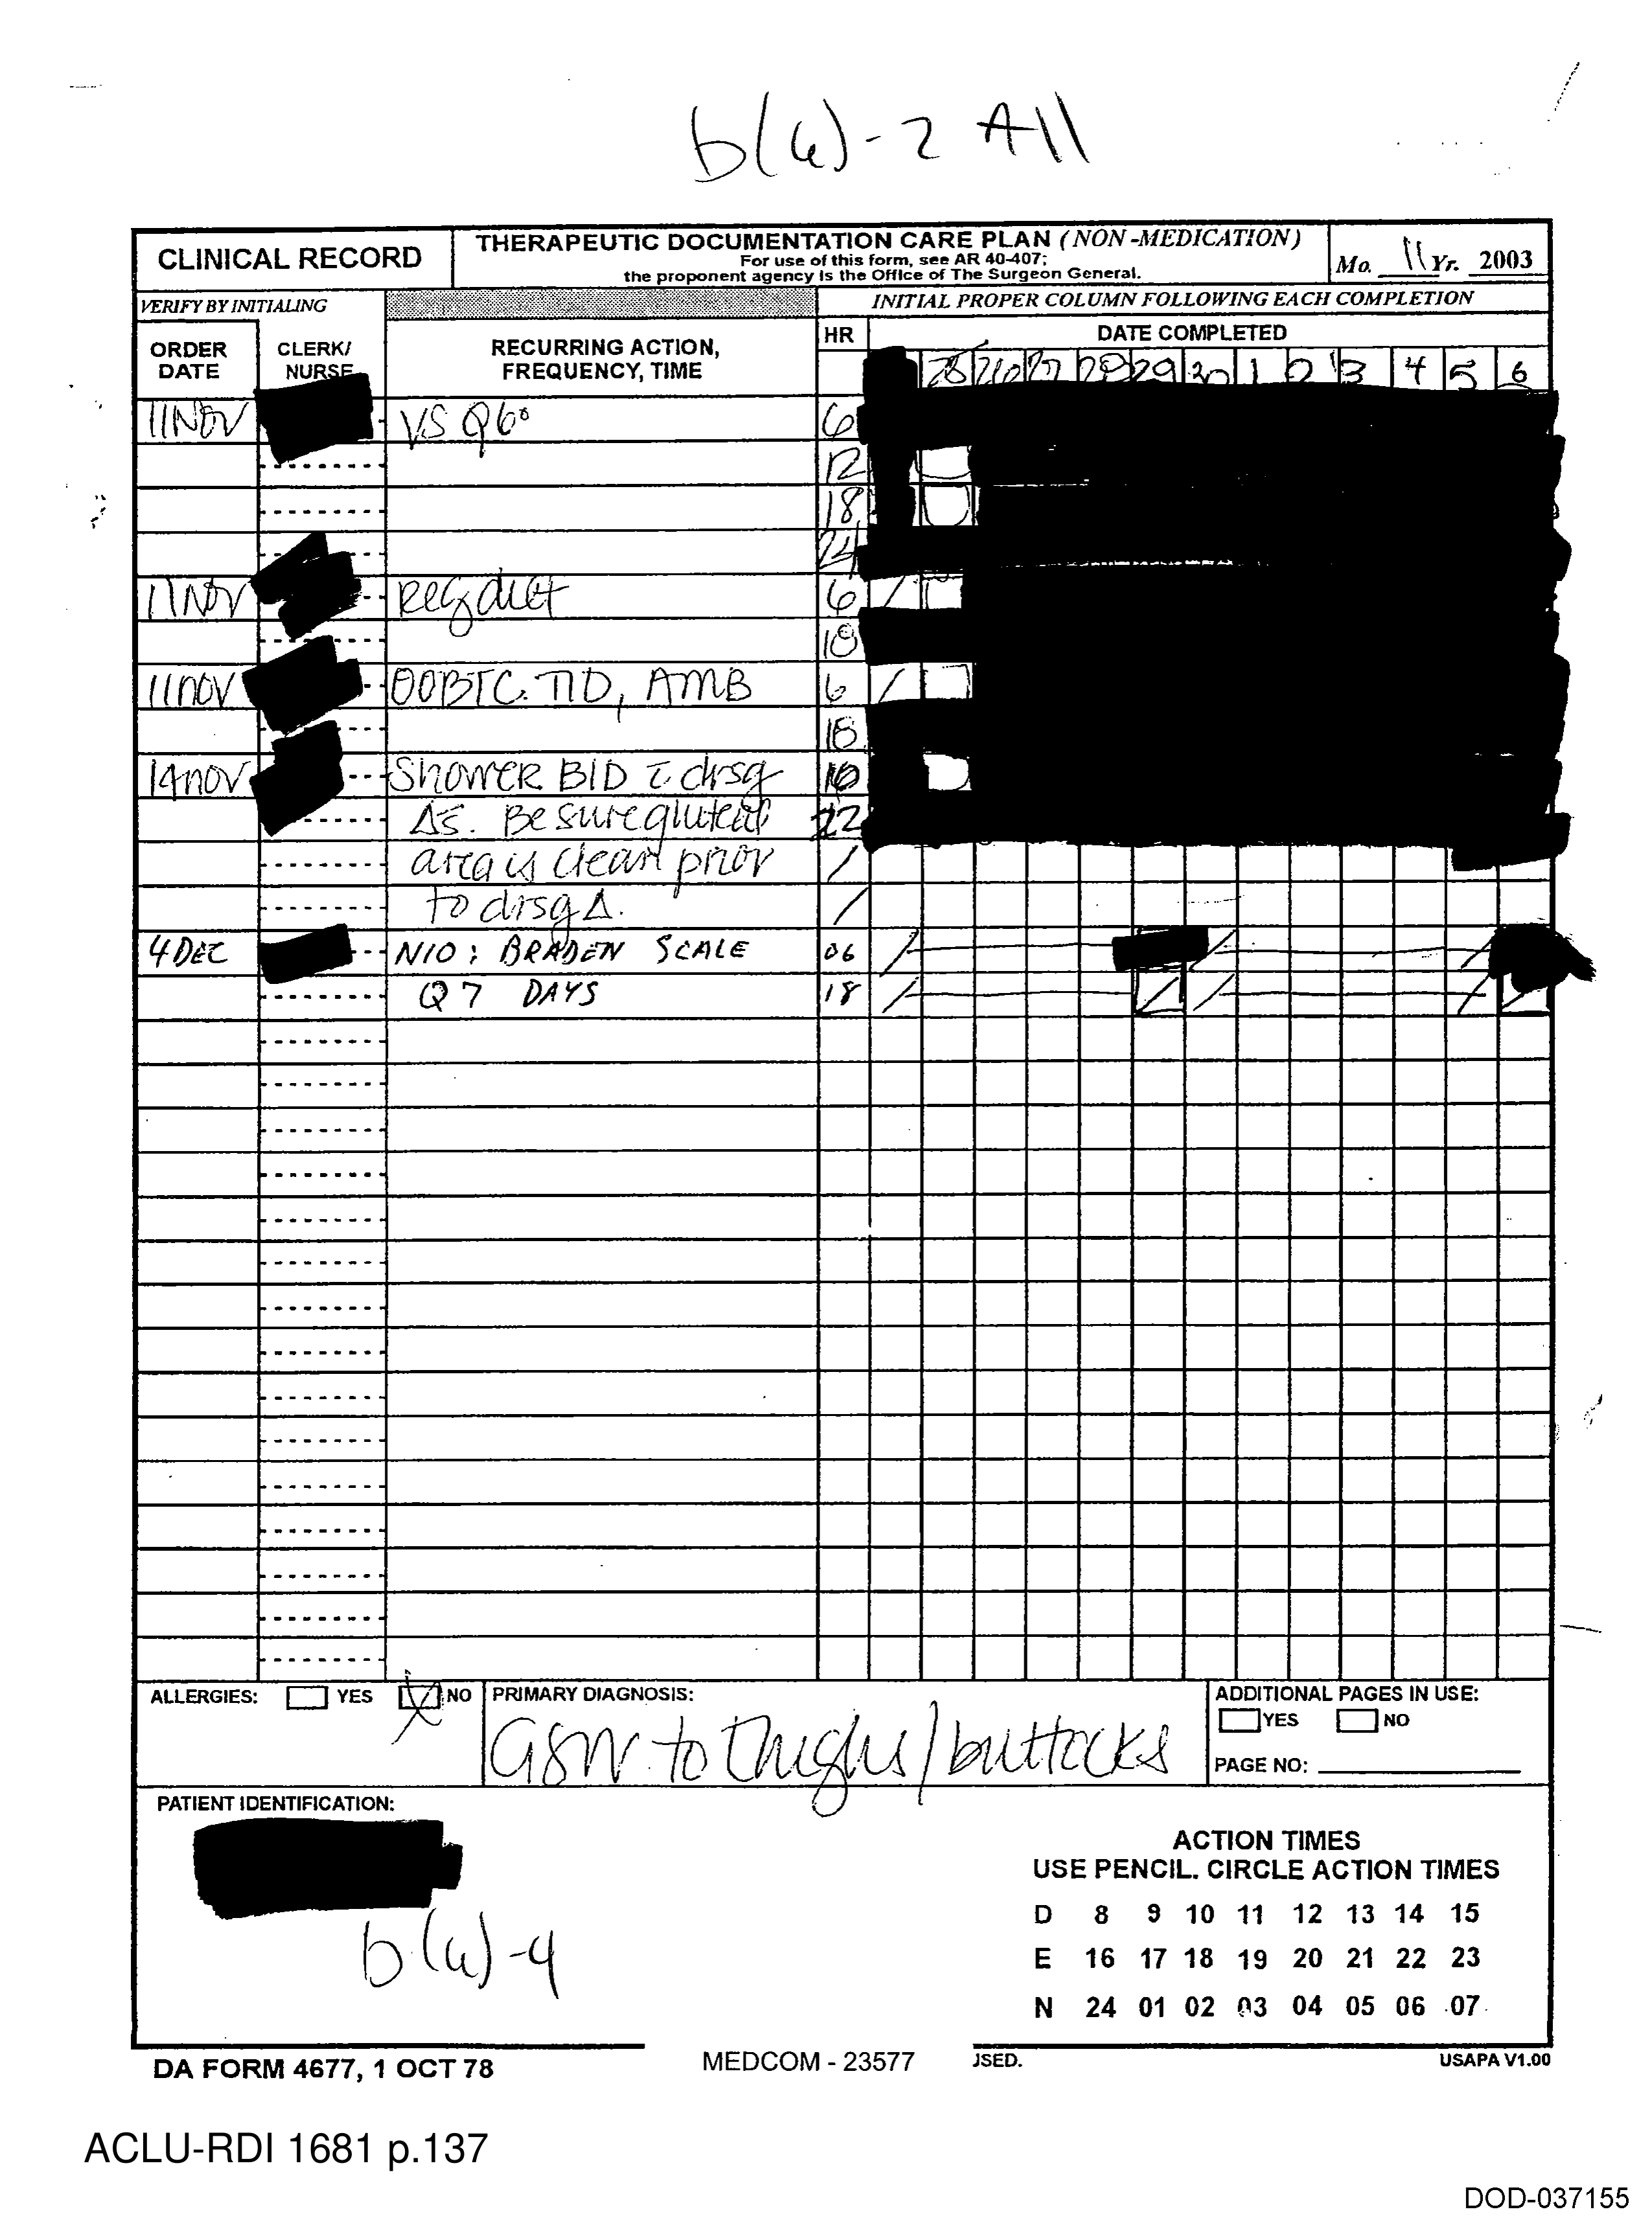 b(6)-2 All
CLINICAL RECORD
THERAPEUTIC DOCUMENTATION CARE PLAN (NON-MEDICATION)
For use of this form, see AR 40-407;
the proponent agency is the Office of The Surgeon General.
Mo. 11 Yr. 2003
VERIFY BY INITIALING
INITIAL PROPER COLUMN FOLLOWING EACH COMPLETION
ORDER DATE
CLERK/ NURSE
RECURRING ACTION, FREQUENCY, TIME
HR
DATE COMPLETED
25 26 27 28 29 30 1 2 3 4 5 6
11 NOV VS Q6° 6
12
18
24
11 NOV Reg diet 6
18
11 NOV OOBTC TID, AMB 6
18
14 NOV Shower BID c̄ drsg 10
Δs. Be sure gluteal 22
area is clean prior /
to drsg Δ. /
4 DEC N10: BRADEN SCALE 06
Q 7 DAYS 18
ALLERGIES: YES NO
PRIMARY DIAGNOSIS:
GSW to thighs/buttocks
ADDITIONAL PAGES IN USE:
YES NO
PAGE NO:
PATIENT IDENTIFICATION:
b(6)-4
ACTION TIMES
USE PENCIL. CIRCLE ACTION TIMES
D 8 9 10 11 12 13 14 15
E 16 17 18 19 20 21 22 23
N 24 01 02 03 04 05 06 07
DA FORM 4677, 1 OCT 78
MEDCOM - 23577
USED.
USAPA V1.00
ACLU-RDI 1681 p.137
DOD-037155